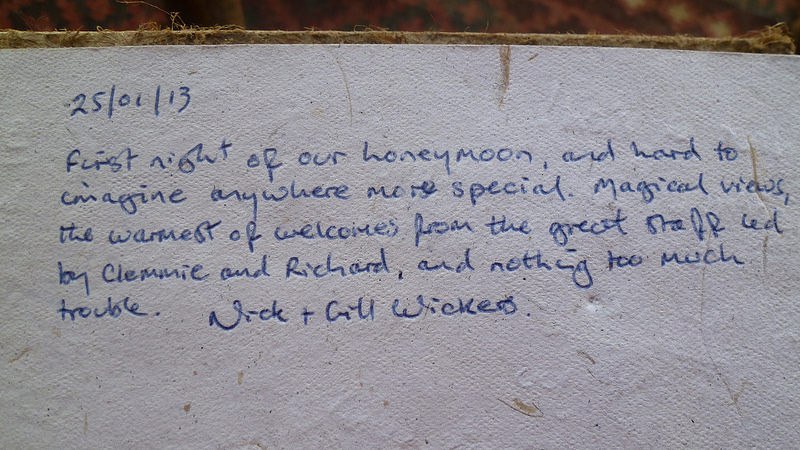 25/01/13
First night of our honeymoon, and hard to
imagine anywhere more special. Magical views,
the warmest of welcomes from the great staff led
by Clemmie and Richard, and nothing too much
trouble. Nick + Gill Wickers.